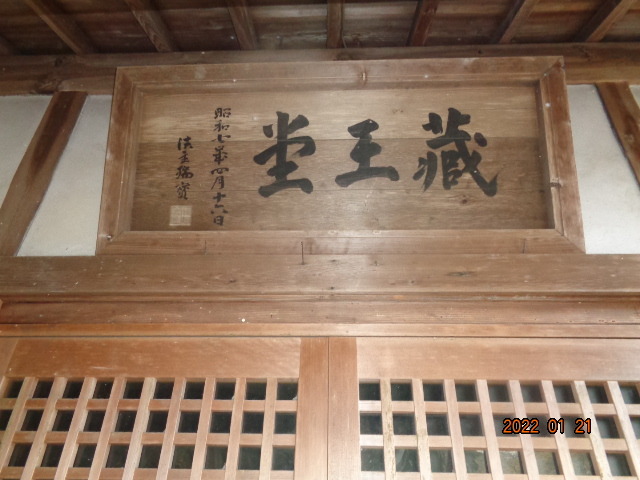 藏王堂
昭和七歳四月十六日
法主瑞資
2022 01 21